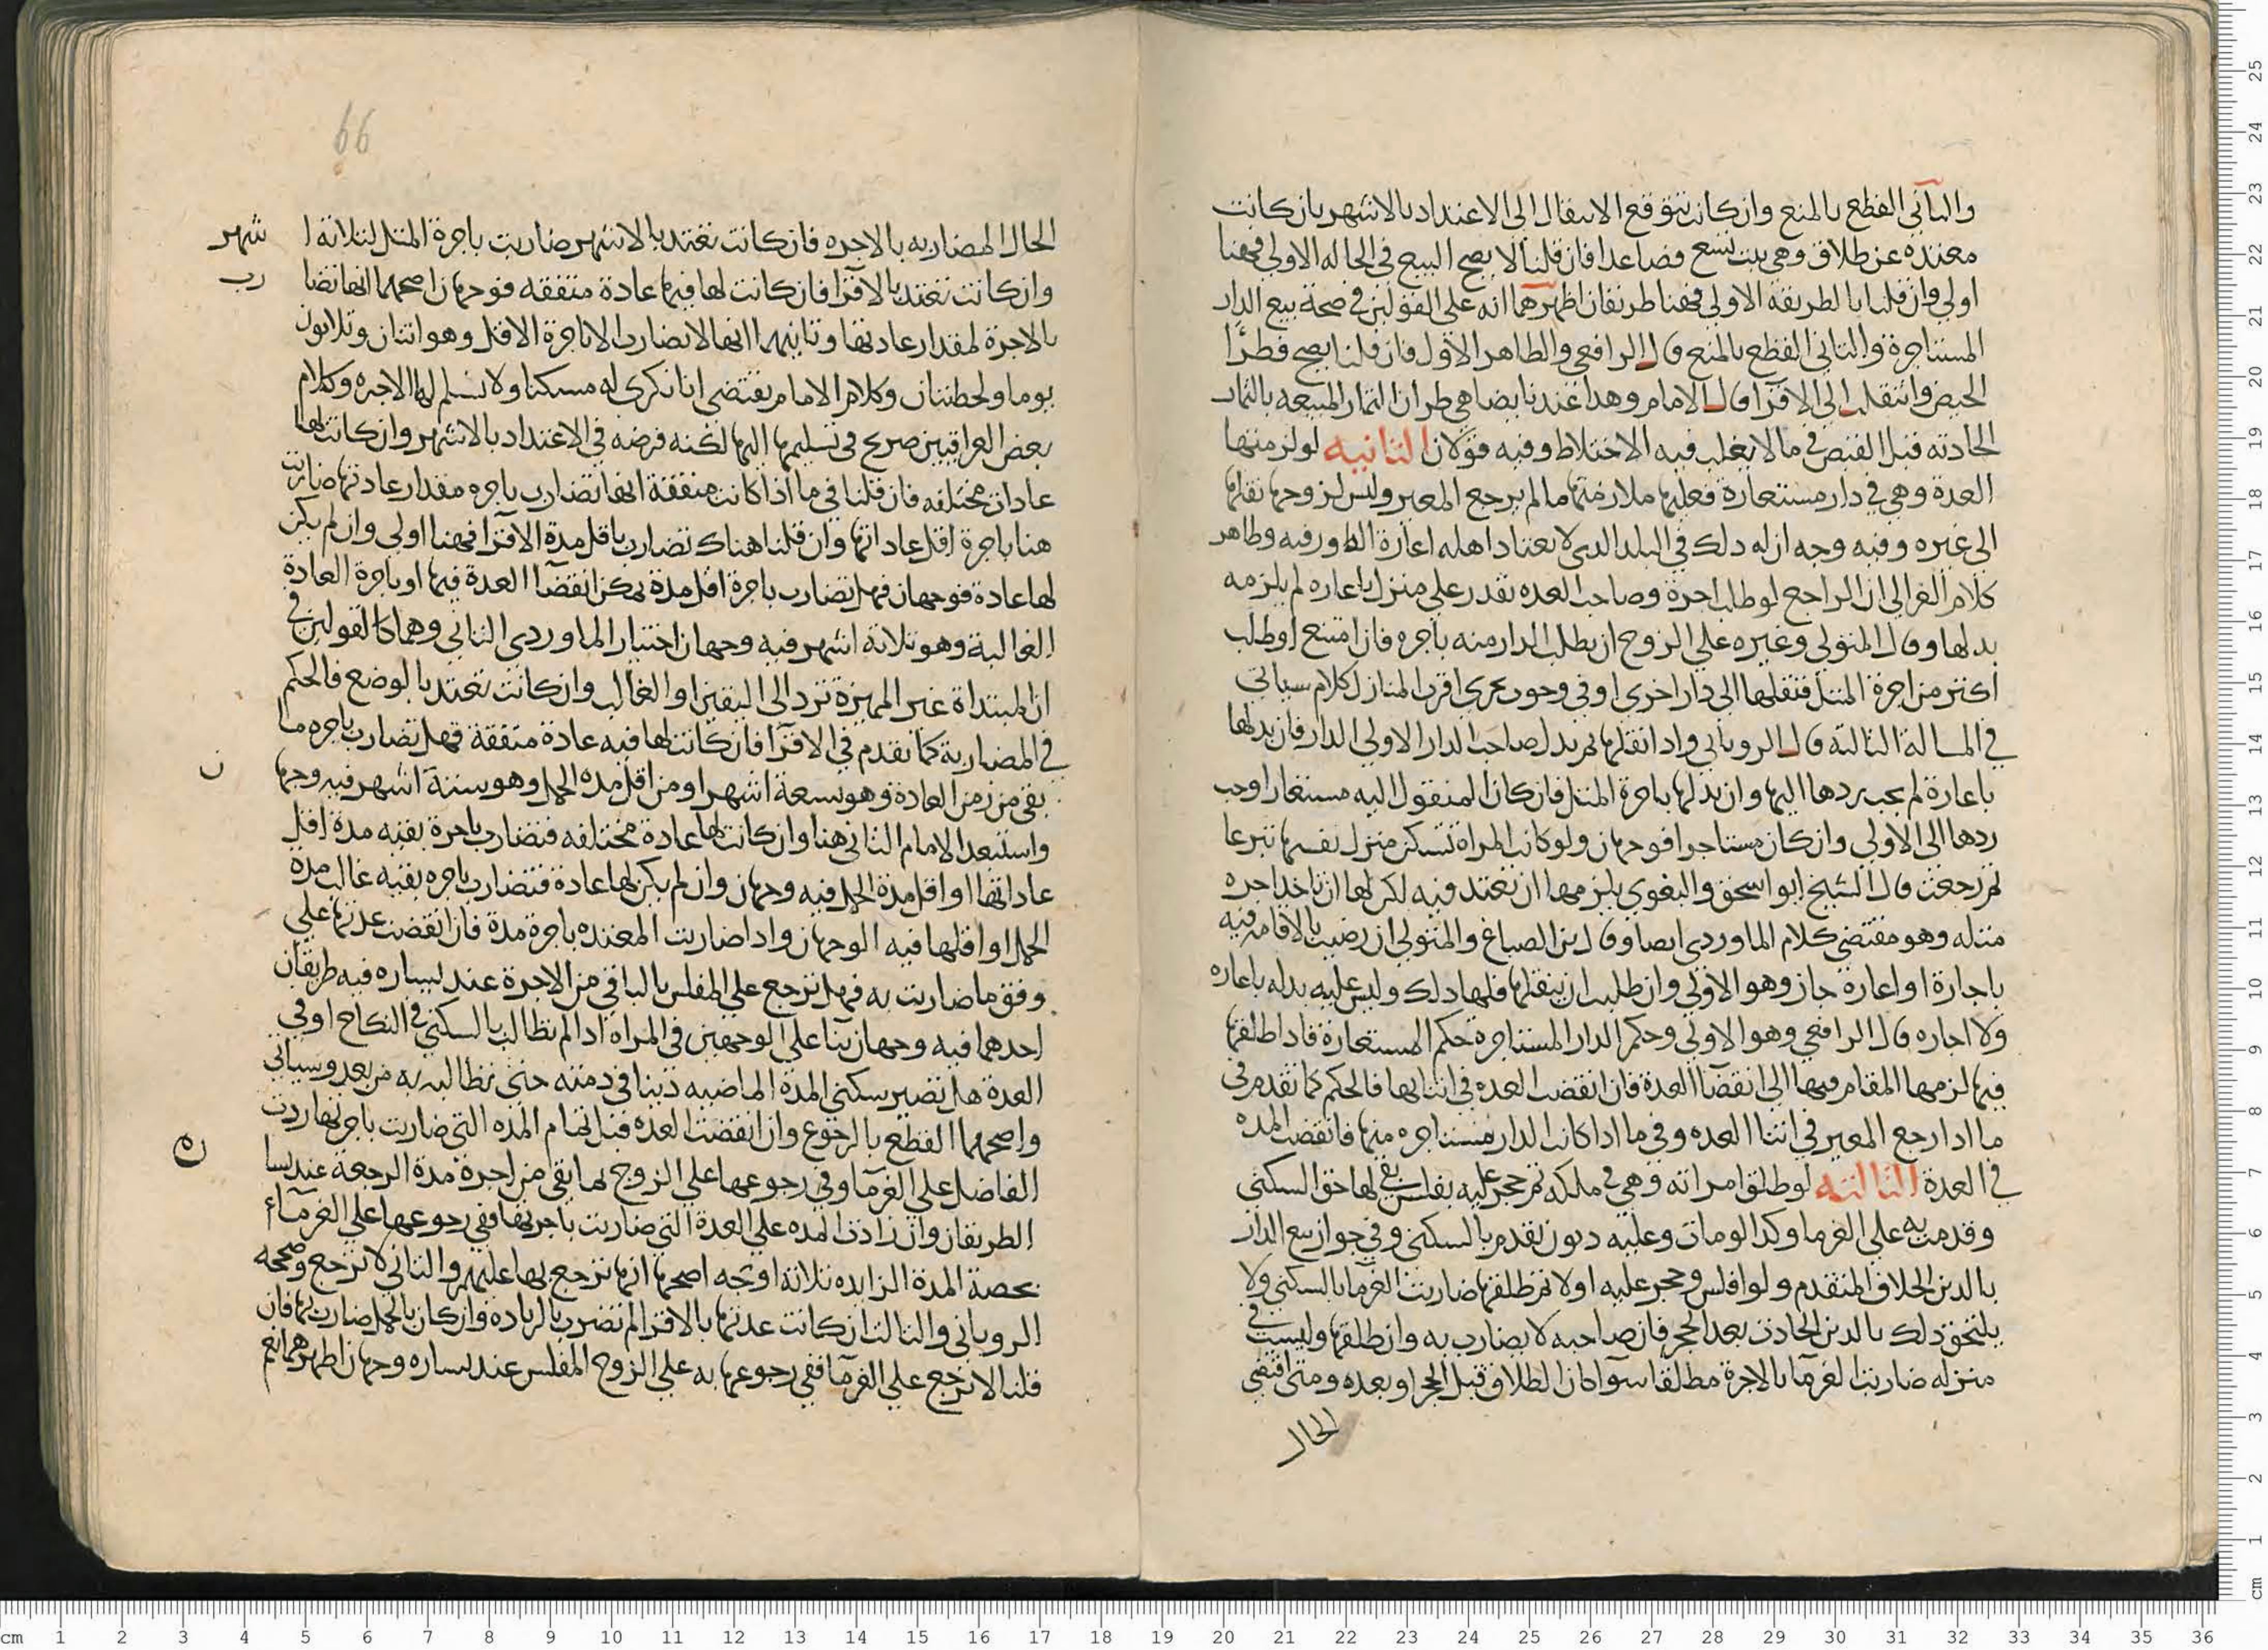 والثاني القطع بالمنع وان كانت تتوقع الانتقال الى الاعتداد بالاشهر بان كانت
معتده عن طلاق وهي بنت تسع فصاعدا فان قلنا لا يصح البيع في الحاله الاولى فههنا
اولى وان قلنا بالطريقه الاولى فههنا طريقان اظهرهما انه على القولين في صحة بيع الدار
المستاجرة والثاني القطع بالمنع قال الرافعي والظاهر الاول فان قلنا يصح فطرأ
الحيض وانتقلت الى الاقرآ قال الامام وهذا عندنا يضاهي طرآن الثمار المبيعه بالثمار
الحادثه قبل القبض في ما لا يغلب فيه الاختلاط وفيه قولان الثانيه لو لزمتها
العدة وهي في دار مستعارة فعليها ملازمتها ما لم يرجع المعير وليس لزوجها نقلها
الى غيره وفيه وجه ان له ذلك في البلد الذي لا يعتاد اهله اعارة الدور فيه وظاهر
كلام الغزالي ان الراجع لو طلب اجرة وصاحب العده يقدر على منزل باعاره لم يلزمه
بدلها وقال المتولي وغيره على الزوج ان يطلب الدار منه باجره فان امتنع او طلب
اكثر من اجرة المثل فتنقلها الى دار اخرى او في وجوب تحري اقرب المنازل كلام سياتي
في المسالة الثالثة قال الروياني واذا نقلها ثم بذل صاحب الدار الاولى الدار فان بذلها
باعارة لم يجب ردها اليها وان بذلها باجرة المثل فان كان المنقول اليه مستعارا وجب
ردها الى الاولى وان كان مستاجرا فوجهان ولو كانت المراة تسكن منزل نفسها تبرعا
ثم رجعت قال الشيخ ابو اسحق والبغوي يلزمها ان تعتد فيه لكن لها ان تاخذ اجره
مثله وهو مقتضى كلام الماوردي ايضا وقال ابن الصباغ والمتولي ان رضيت بالاقامه فيه
باجارة او اعاره جاز وهو الاولى وان طلبت ان ينقلها فلها ذلك وليس عليه بذله باعاره
ولا اجاره قال الرافعي وهو الاولى وحكم الدار المستاجرة حكم المستعارة فاذا طلقها
فيها لزمها المقام فيها الى انقضآ العدة فان انقضت العده في اثنائها فالحكم كما تقدم في
ما اذا رجع المعير في اثنا العده وفي ما اذا كانت الدار مستاجره منها فانقضت المده
في العدة الثالثه لو طلق امراته وهي في ملكه ثم حجر عليه بفلس بقي لها حق السكنى
وقدمت به على الغرما وكذا لو مات وعليه ديون تقدم بالسكنى وفي جواز بيع الدار
بالدين الخلاف المتقدم ولو افلس وحجر عليه اولا ثم طلقها ضاربت الغرما بالسكنى ولا
يلتحق ذلك بالدين الحادث بعد الحجر فان صاحبه لا يضارب به وان طلقها وليست في
منزله ضاربت الغرمآ بالاجرة مطلقا سوآ كان الطلاق قبل الحجر او بعده ومتى اقتضى
الحال
66
الحال المضاربه بالاجره فان كانت تعتد بالاشهر ضاربت باجرة المثل لثلاثة اشهر
وان كانت تعتد بالاقرآ فان كانت لها فيها عادة متفقه فوجهان اصحهما انها تضارب
بالاجرة لمقدار عادتها وثانيهما انها لا تضارب الا باجرة الاقل وهو اثنان وثلاثون
يوما ولحظتان وكلام الامام يقتضي انا نكري له مسكنا ولا نسلم لها الاجره وكلام
بعض العراقيين صريح في تسليمها اليها لكنه فرضه في الاعتداد بالاشهر وان كانت لها
عادات مختلفه فان قلنا في ما اذا كانت متفقة انها تضارب باجره مقدار عادتها ضاربت
هنا باجرة اقل عاداتها وان قلنا هناك تضارب باقل مدة الاقرآ فههنا اولى وان لم يكن
لها عادة فوجهان فهل تضارب باجرة اقل مدة يمكن انقضآ العدة فيها او باجرة العادة
الغالبة وهو ثلاثة اشهر فيه وجهان اختيار الماوردي الثاني وهما كالقولين في
ان المبتداة غير المميزة ترد الى اليقين او الغالب وان كانت تعتد بالوضع فالحكم
في المضاربة كما تقدم في الاقرآ فان كانت لها فيه عادة متفقة فهل تضارب باجره ما
بقي من زمن العادة وهو تسعة اشهر او من اقل مده الحمل وهو ستة اشهر فيه وجهان
واستبعد الامام الثاني هنا وان كانت لها عادة مختلفه فتضارب باجرة بقيه مدة اقل
عاداتها او اقل مدة الحمل فيه وجهان وان لم يكن لها عادة فتضارب باجره بقيه غالب مدة
الحمل او اقلها فيه الوجهان واذا ضاربت المعتده باجرة مدة فان انقضت عدتها على
وفق ما ضاربت به فهل ترجع على المفلس بالباقي من الاجرة عند يساره فيه طريقان
احدهما فيه وجهان بنآ على الوجهين في المراه اذا لم تطالب بالسكنى في النكاح او في
العدة هل تصير سكنى المدة الماضيه دينا في ذمته حتى تطالبه به من بعد وسياتي
واصحهما القطع بالرجوع وان انقضت العده قبل تمام المده التي ضاربت باجرتها ردت
الفاضل على الغرمآ وفي رجوعها على الزوج لما بقي من اجرة مدة الرجعة عند يساره
الطريقان وان زادت المده على العدة التي ضاربت باجرتها ففي رجوعها على الغرمآء
بحصة المدة الزايده ثلاثة اوجه اصحها انها ترجع بها عليهم والثاني لا ترجع وصححه
الروياني والثالث ان كانت عدتها بالاقرا لم تضرب بالزياده وان كان بالحمل ضاربت بها فان
قلنا لا ترجع على الغرمآ ففي رجوعها به على الزوج المفلس عند يساره وجهان اظهرهما نعم